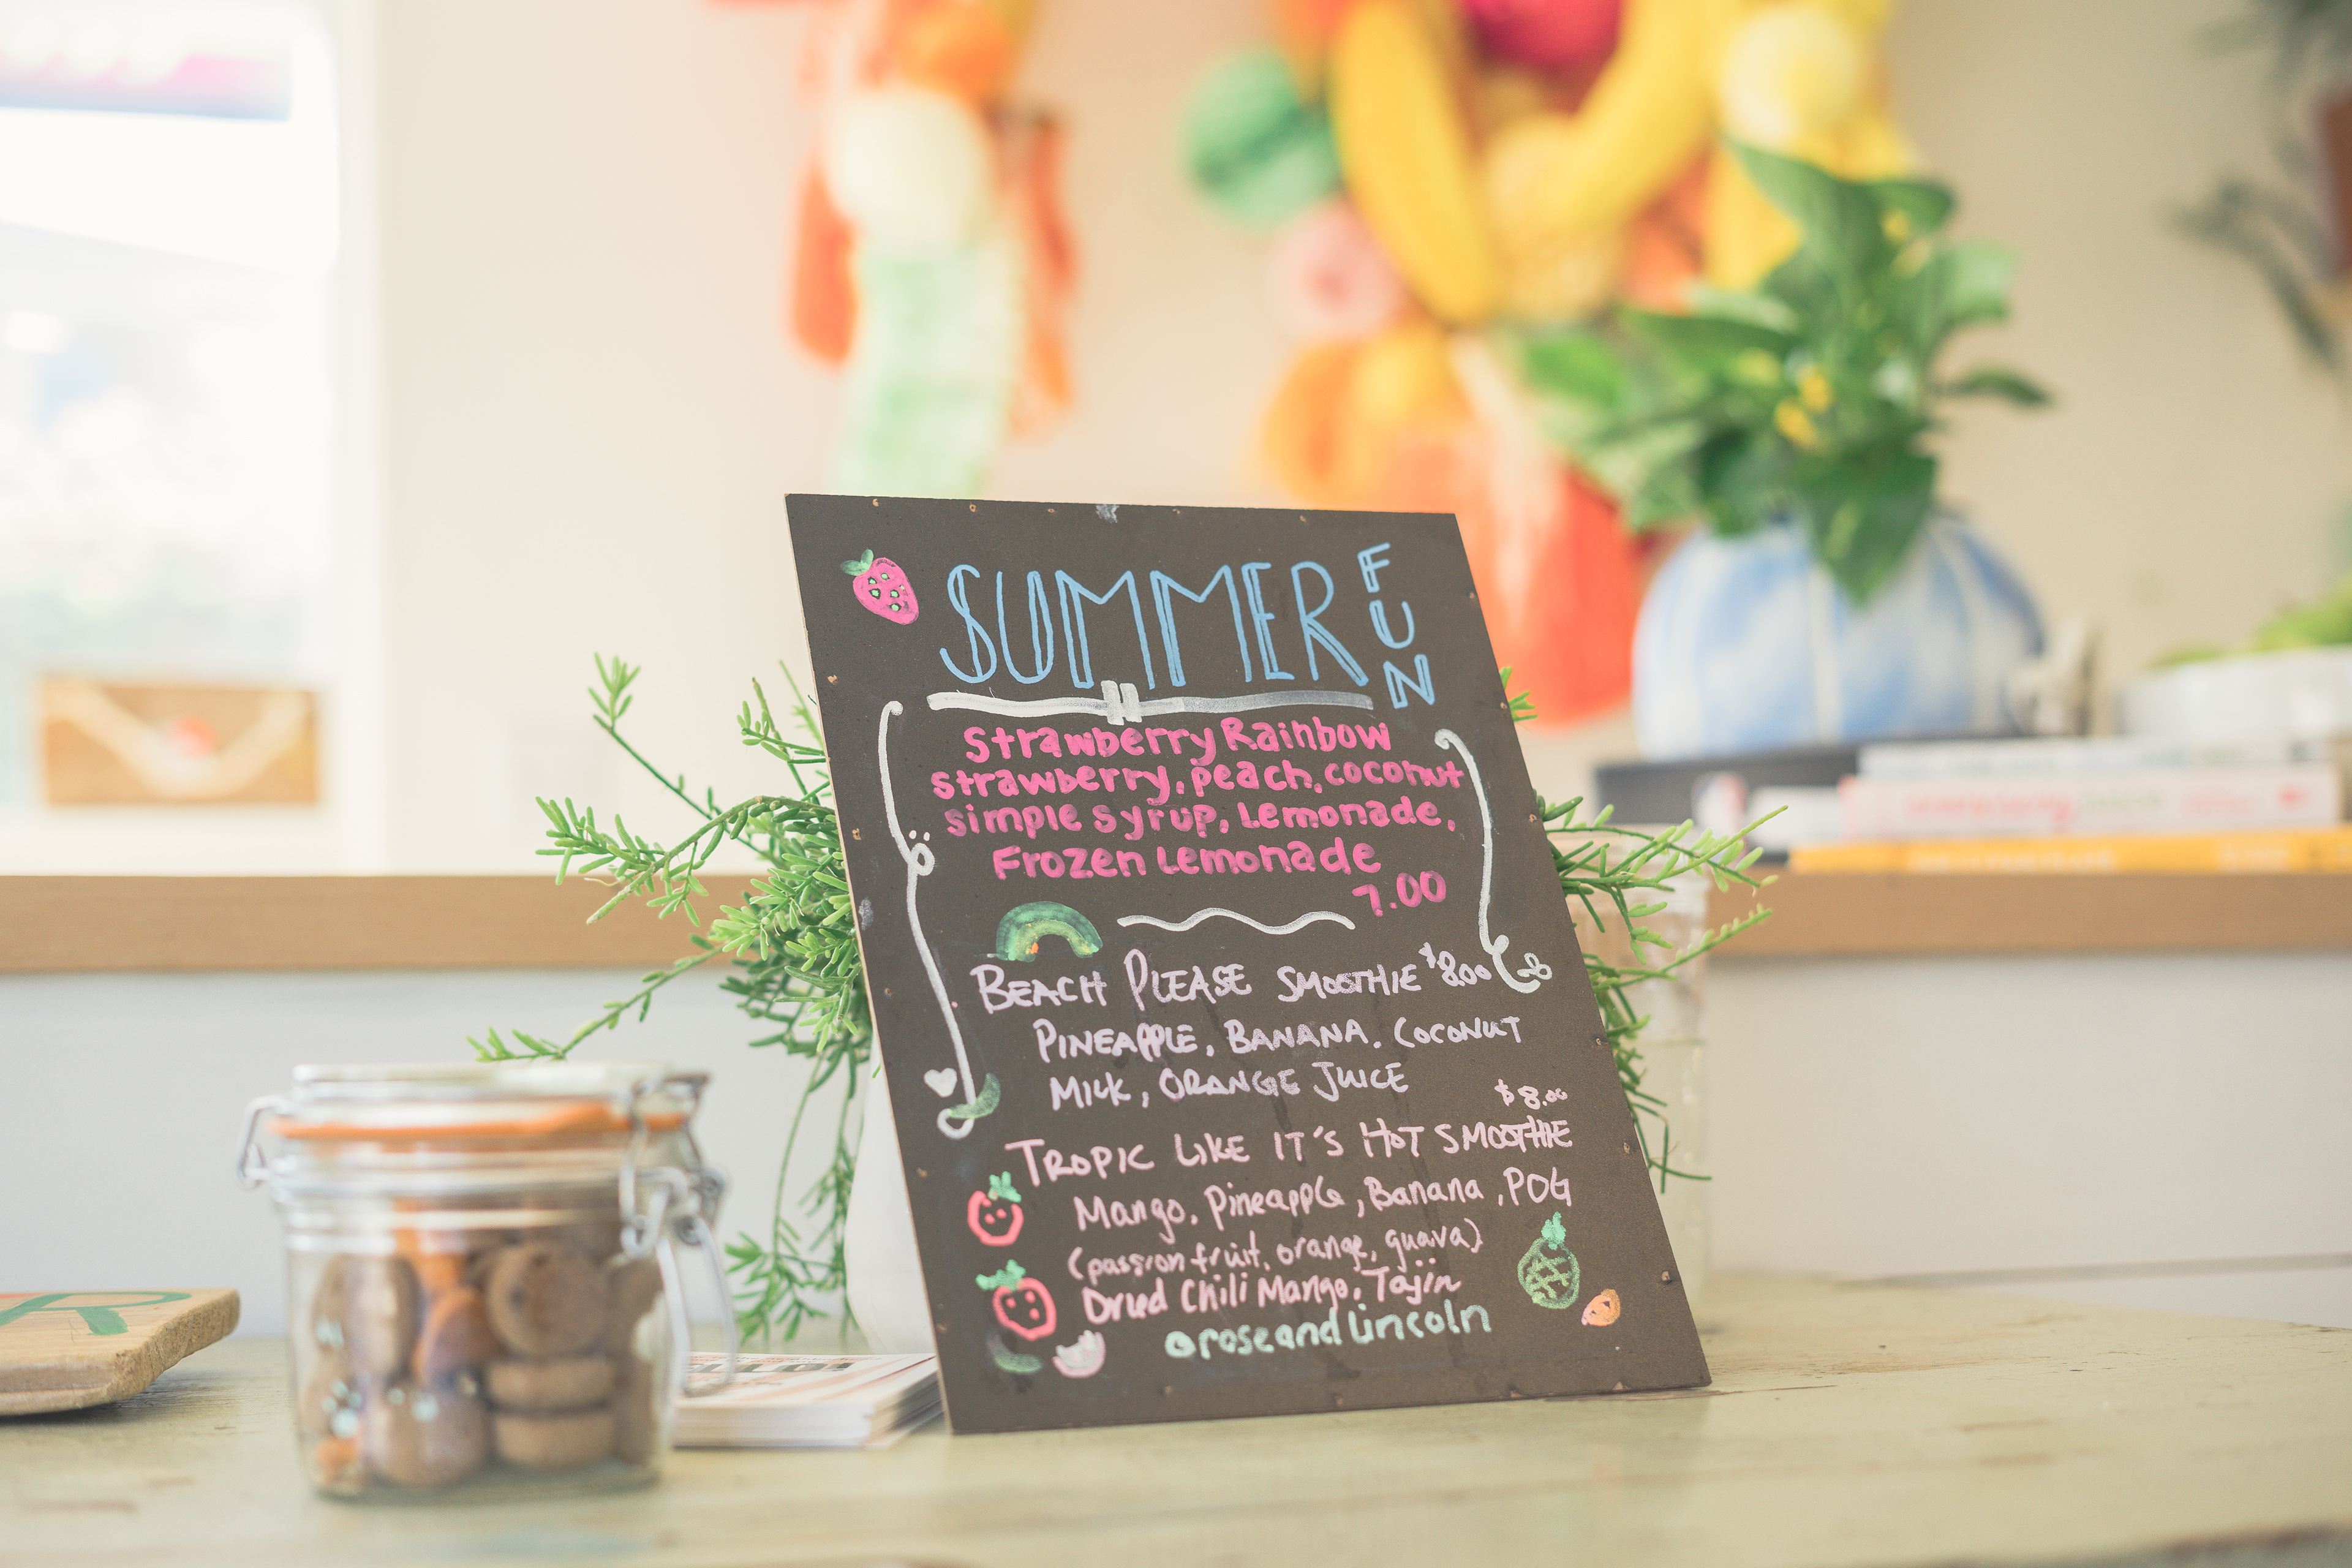 SUMMER FUN
Strawberry Rainbow
strawberry, peach, coconut
simple syrup, Lemonade,
Frozen Lemonade
7.00
BEACH PLEASE SMOOTHIE $8.00
PINEAPPLE, BANANA, COCONUT
MILK, ORANGE JUICE
$8.00
TROPIC LIKE IT'S HOT SMOOTHIE
Mango, Pineapple, Banana, POG
(passion fruit, orange, guava)
Dried Chili Mango, Tajin
@roseandlincoln
R